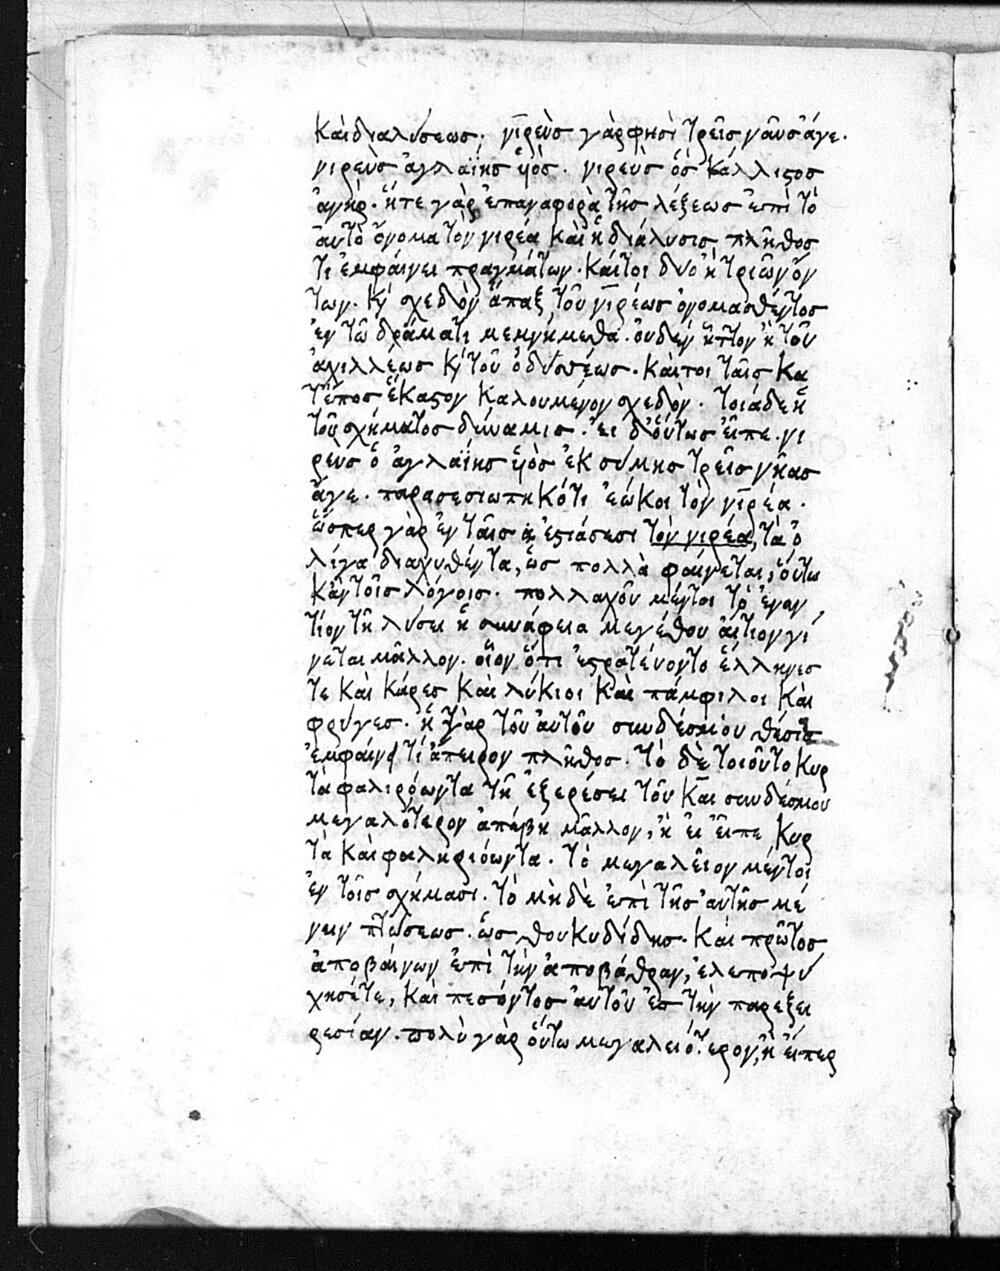 καὶ διαλύσεως. νιρεὺς γὰρ φησὶ τρεῖς νᾶυς ἄγε.
νιρεὺς ἀγλαΐης υἱὸς. νιρεὺς ὃς κάλλιστος
ἀνὴρ. ἥτε γὰρ ἐπαναφορὰ τῆς λέξεως ἐπὶ τὸ
ἀυτὸ ὄνομα τὸν νιρέα καὶ ἡ διάλυσις πλῆθος
τι ἐμφάινει πραγμάτων. κάιτοι δυο ἢ τριῶν ὄν
των. κὶ σχεδὸν ἅπαξ τοῦ νιρέως ὀνομασθέντος
ἐν τῶ δράματι μεμνήμεθα. ὀυδὲν ἧττον ἢ τοῦ
ἀχιλλέως κὶ τοῦ ὀδυσσέως. κάιτοι ταῖς κα
τέπος ἕκαστον καλουμένον σχεδὸν. τοιάδε ἡ
τοῦ σχήματος δύναμις. ἐι δ' ὅυτως ἔιπε. νι
ρευς ὁ ἀγλαΐης υἱὸς ἐκ σύμης τρεῖς νῆας
ἄγε. παρασεσιωπηκότι ἐώκοι τὸν νιρέα.
ὥσπερ γὰρ ἐν ταῖς ἑστιάσεσι τὸν νιρέα, τὰ ὀ
λίγα διαχυθέντα, ὡς πολλὰ φάινεται, ὅυτω
κἀν τοῖς λόγοις. πολλαχοῦ μέντοι τὸ ἐναν
τίον τῆ λύσει ἡ συνάφεια μεγέθου ἄιτιον γί
νεται μᾶλλον. οἷον ὅτι ἐστρατέυοντο ἕλληνες
τε καὶ κάρες καὶ λύκιοι καὶ πάμφιλοι καὶ
φρύγες. ἡ γὰρ τοῦ ἀυτοῦ συνδέσμου θέσις
ἐμφάινει τι ἄπειρον πλῆθος. τὸ δὲ τοιοῦτο κυρ
τὰ φαλιρόωντα τῆ ἐξερέσει τοῦ καὶ συνδέσμου
μεγαλότερον ἀπέβη μᾶλλον, ἢ ἐι ἔιπε κυρ
τὰ καὶ φαληριόωντα. τὸ μεγαλεῖον μέντοι
ἐν τοῖς σχήμασι. τὸ μὴ δὲ ἐπὶ τῆς ἀυτῆς μέ
νειν πτώσεως. ὡς θουκυδίδης. καὶ πρῶτος
ἀποβάινων ἐπὶ τὴν ἀποβάθραν, ἐλεποψύ
χησέτε, καὶ πεσόντος ἀυτοῦ ἐς τὴν παρεξει
ρεσίαν. πολὺ γὰρ ὅυτω μεγαλειότερον, ἢ ἔιπερ